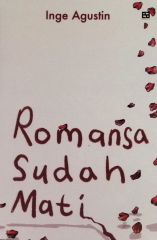 Inge Agustin
Romansa
Sudah
Mati